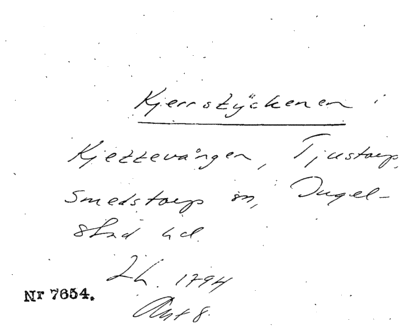 Kjerrstÿckenen i
Kjettevången, Tjustorp,
Smedstorp sn, Ingel-
stad hd.
Lh. 1794
Akt 8.
Nr 7654.